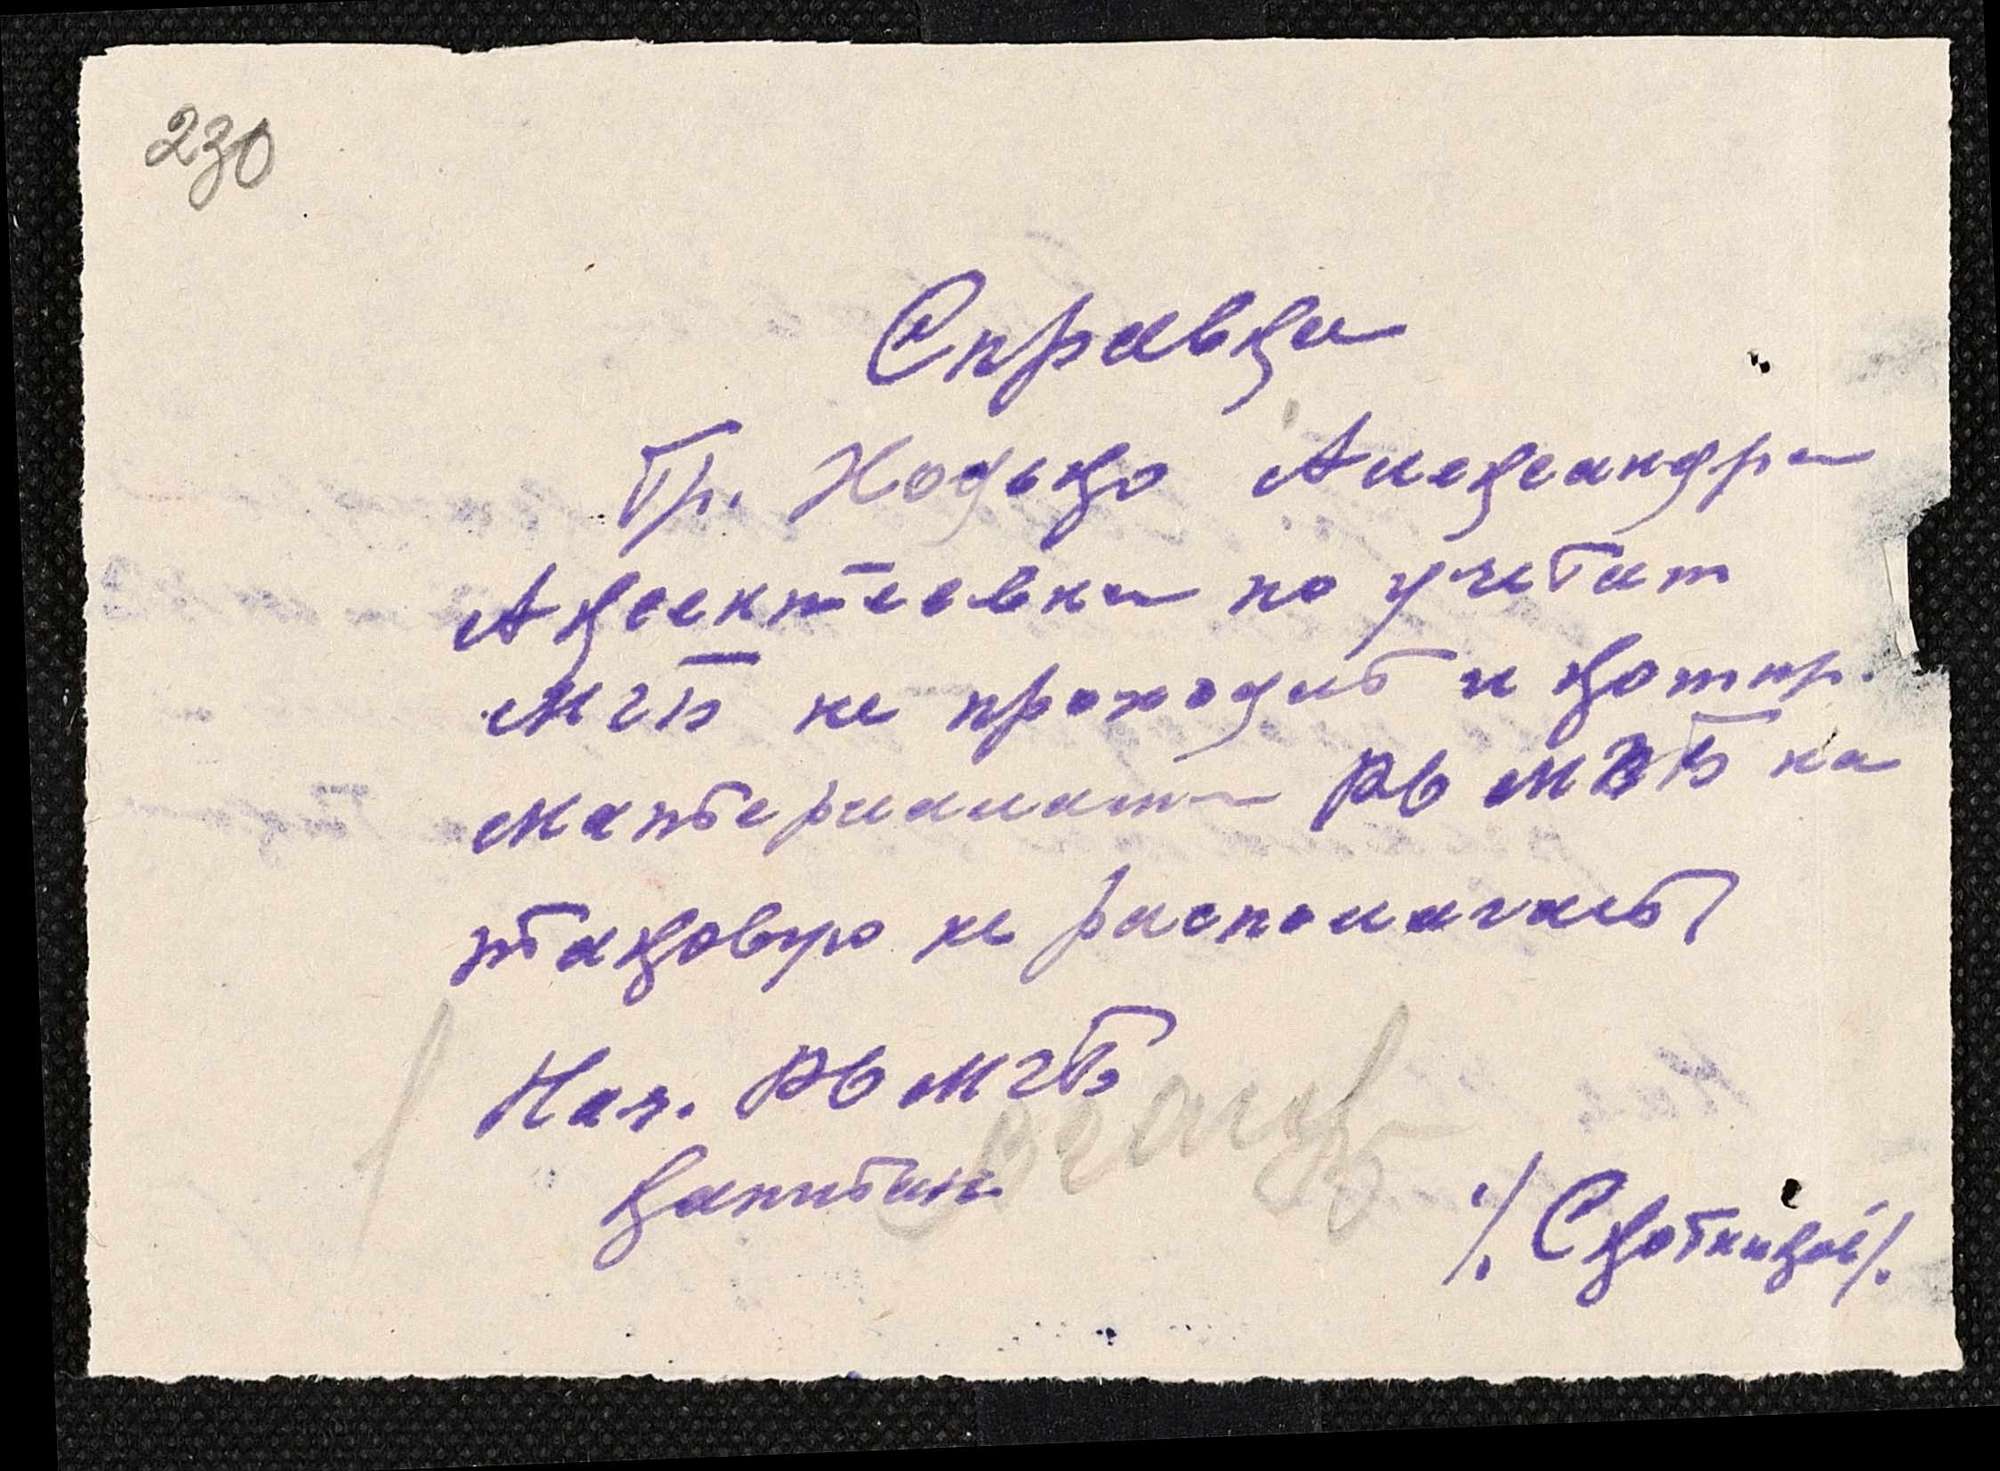 230
Справка
Гр. Ходько Александра
Авксентеевна по учетам
МГБ не проходит и компр.
материалами РО МГБ на
таковую не располагает
Нач. РО МГБ
капитан
/Скотницкий/.